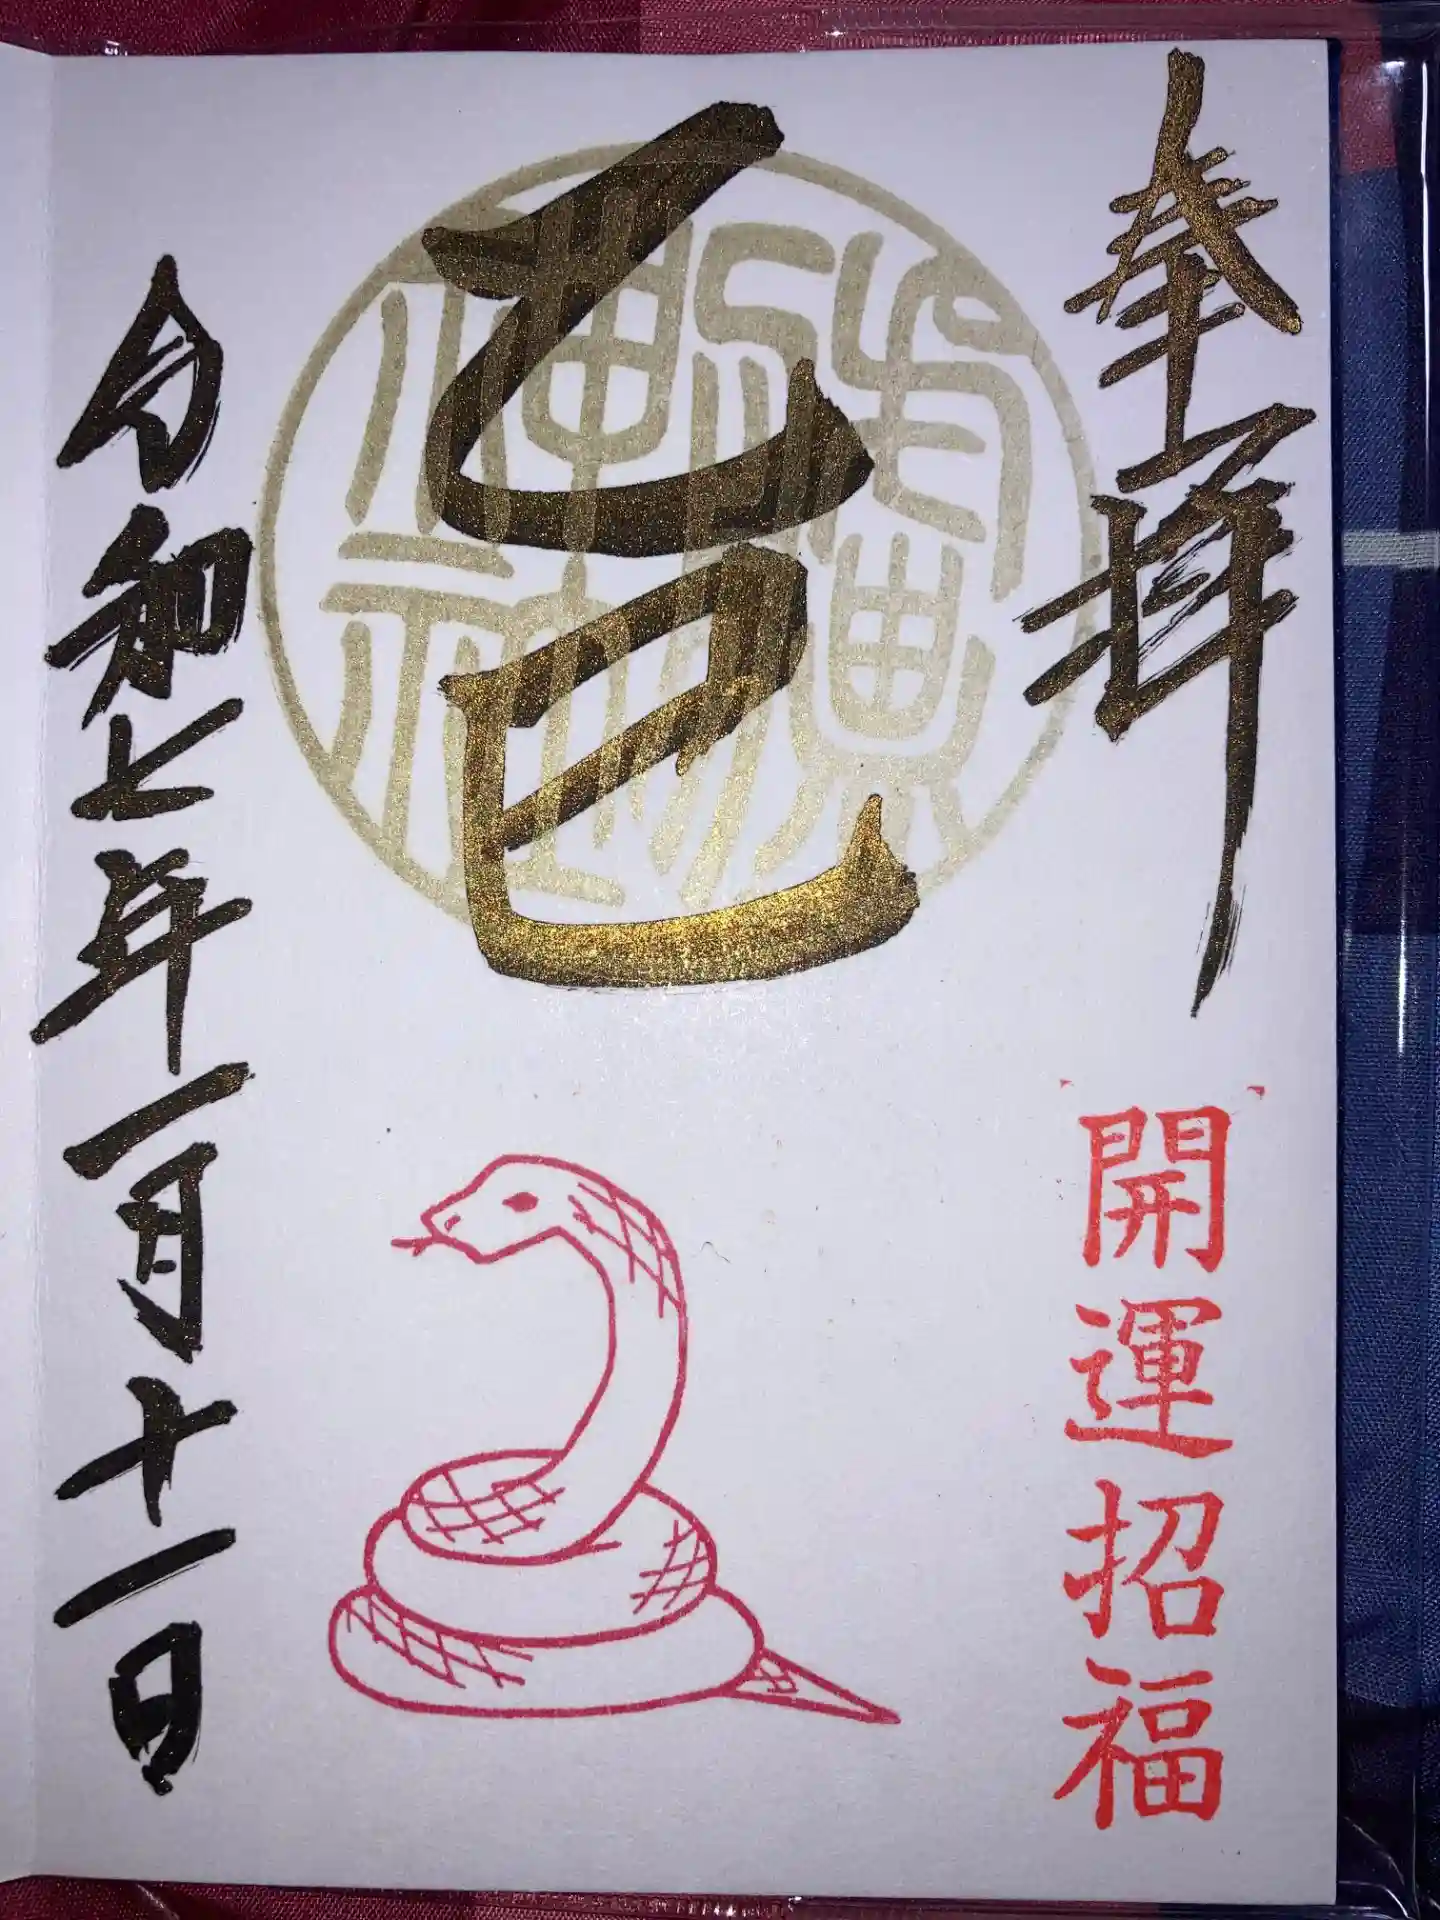 奉拝
開運招福
乙巳
令和七年一月十一日